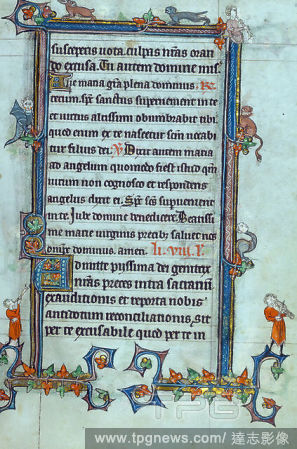 suscipens uota. culpis nr̄as oran
do excusa. Tu autem domine mis̄.
Aue maria gr̄a plena dominus. Re
tecum. sp̄s sanctus superueniet in te
et uirtus altissimi obumbrabit tibi.
quod enim ex te nascetur sc̄m uocabi
tur filius dei. V Dixit autem maria
ad angelum quomodo fiet istud qm̄
uirum non cognosco et respondens
angelus dixit ei. Sp̄s sc̄s superueniet
in te. Iube domine benedicere. Beatissi
me marie uirginis precib; saluet nos
om̄ps dominus. amen. li. viii.
Admitte piissima dei genitrix
nr̄as preces intra sacrarium
exauditionis et reporta nobis
antidotum reconciliationis. sit
per te excusabile quod per te in
TPG
www.tpgnews.com/ 達志影像